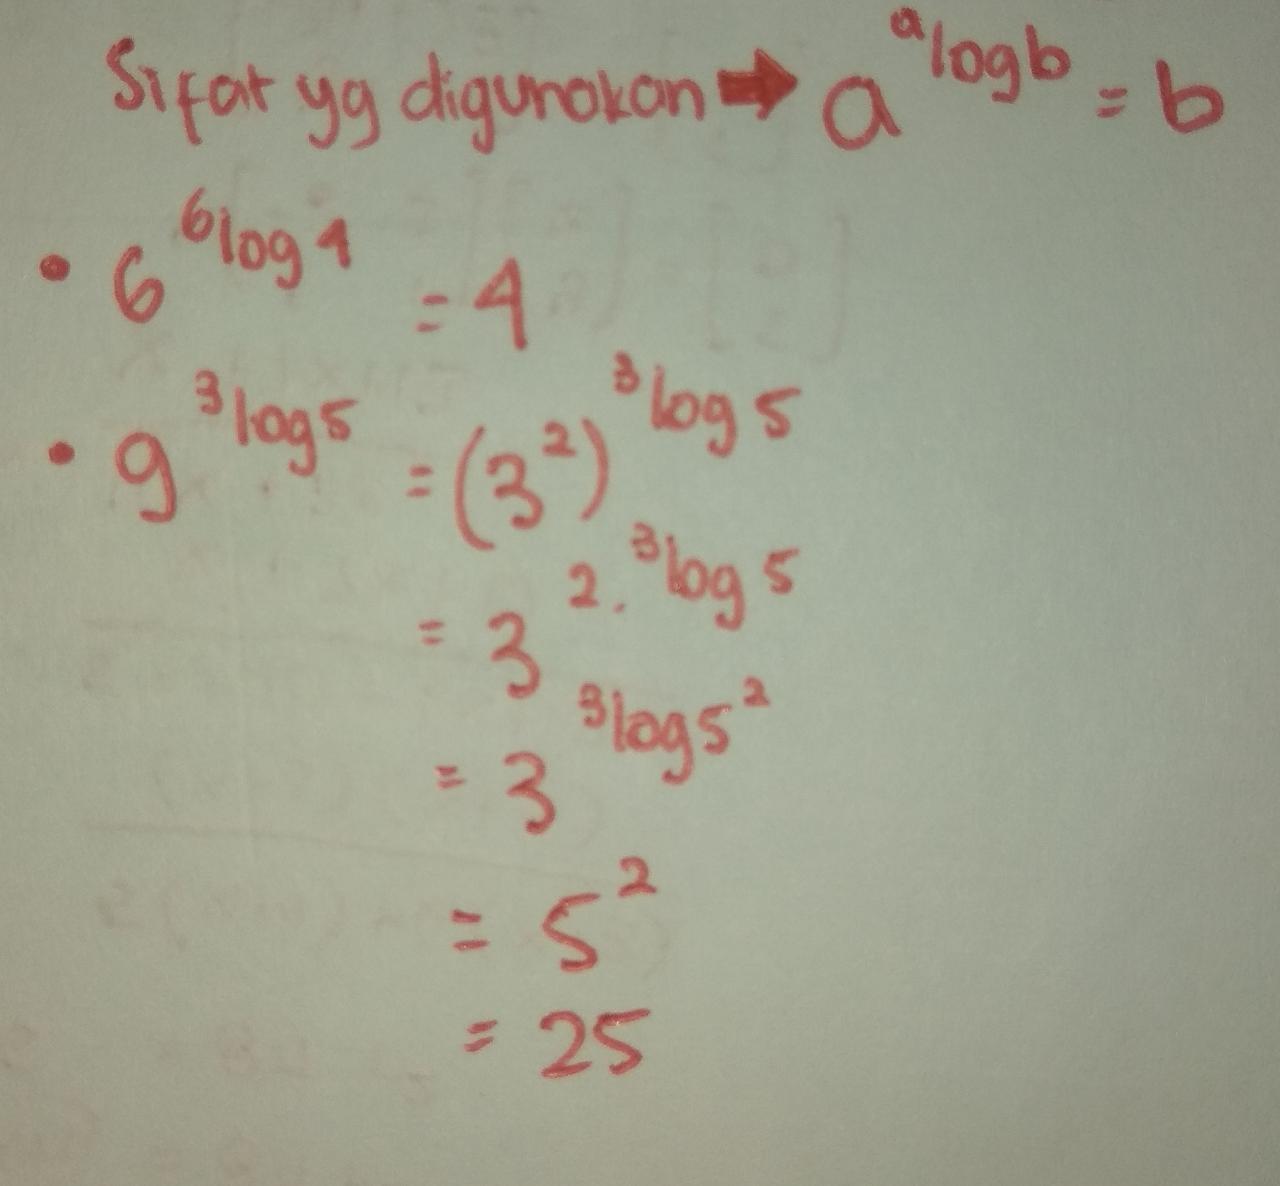 Sifat yg digunakan ➡ a^{ᵃlog b} = b
• 6^{⁶log 4} = 4
• 9^{³log 5} = (3²)^{³log 5}
= 3^{2 . ³log 5}
= 3^{³log 5²}
= 5²
= 25